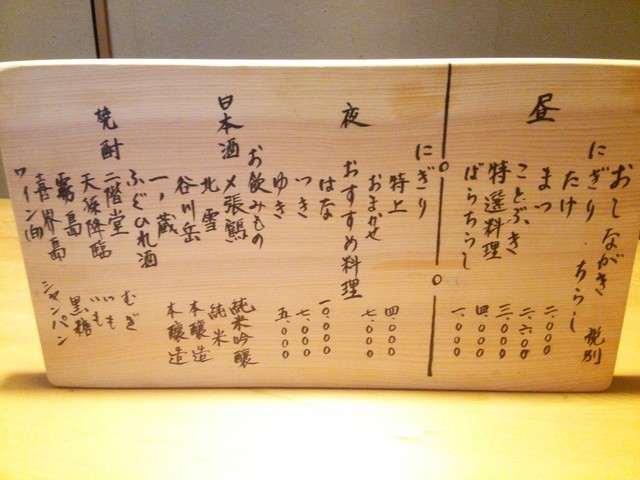 おしながき 税別
昼
にぎり ちらし
たけ 二.〇〇〇
まつ 二.六〇〇
ことぶき 三.〇〇〇
特選料理 四.〇〇〇
ばらちらし 一.〇〇〇
夜
にぎり
特上 四.〇〇〇
おまかせ 七.〇〇〇
おすすめ料理
はな 一〇.〇〇〇
つき 七.〇〇〇
ゆき 五.〇〇〇
お飲みもの
日本酒
〆張鶴 純米吟醸
北雪 純米
谷川岳 本醸造
一ノ蔵 本醸造
ふぐひれ酒
焼酎
二階堂 むぎ
天孫降臨 いも
霧島 いも
喜界島 黒糖
ワイン シャンパン